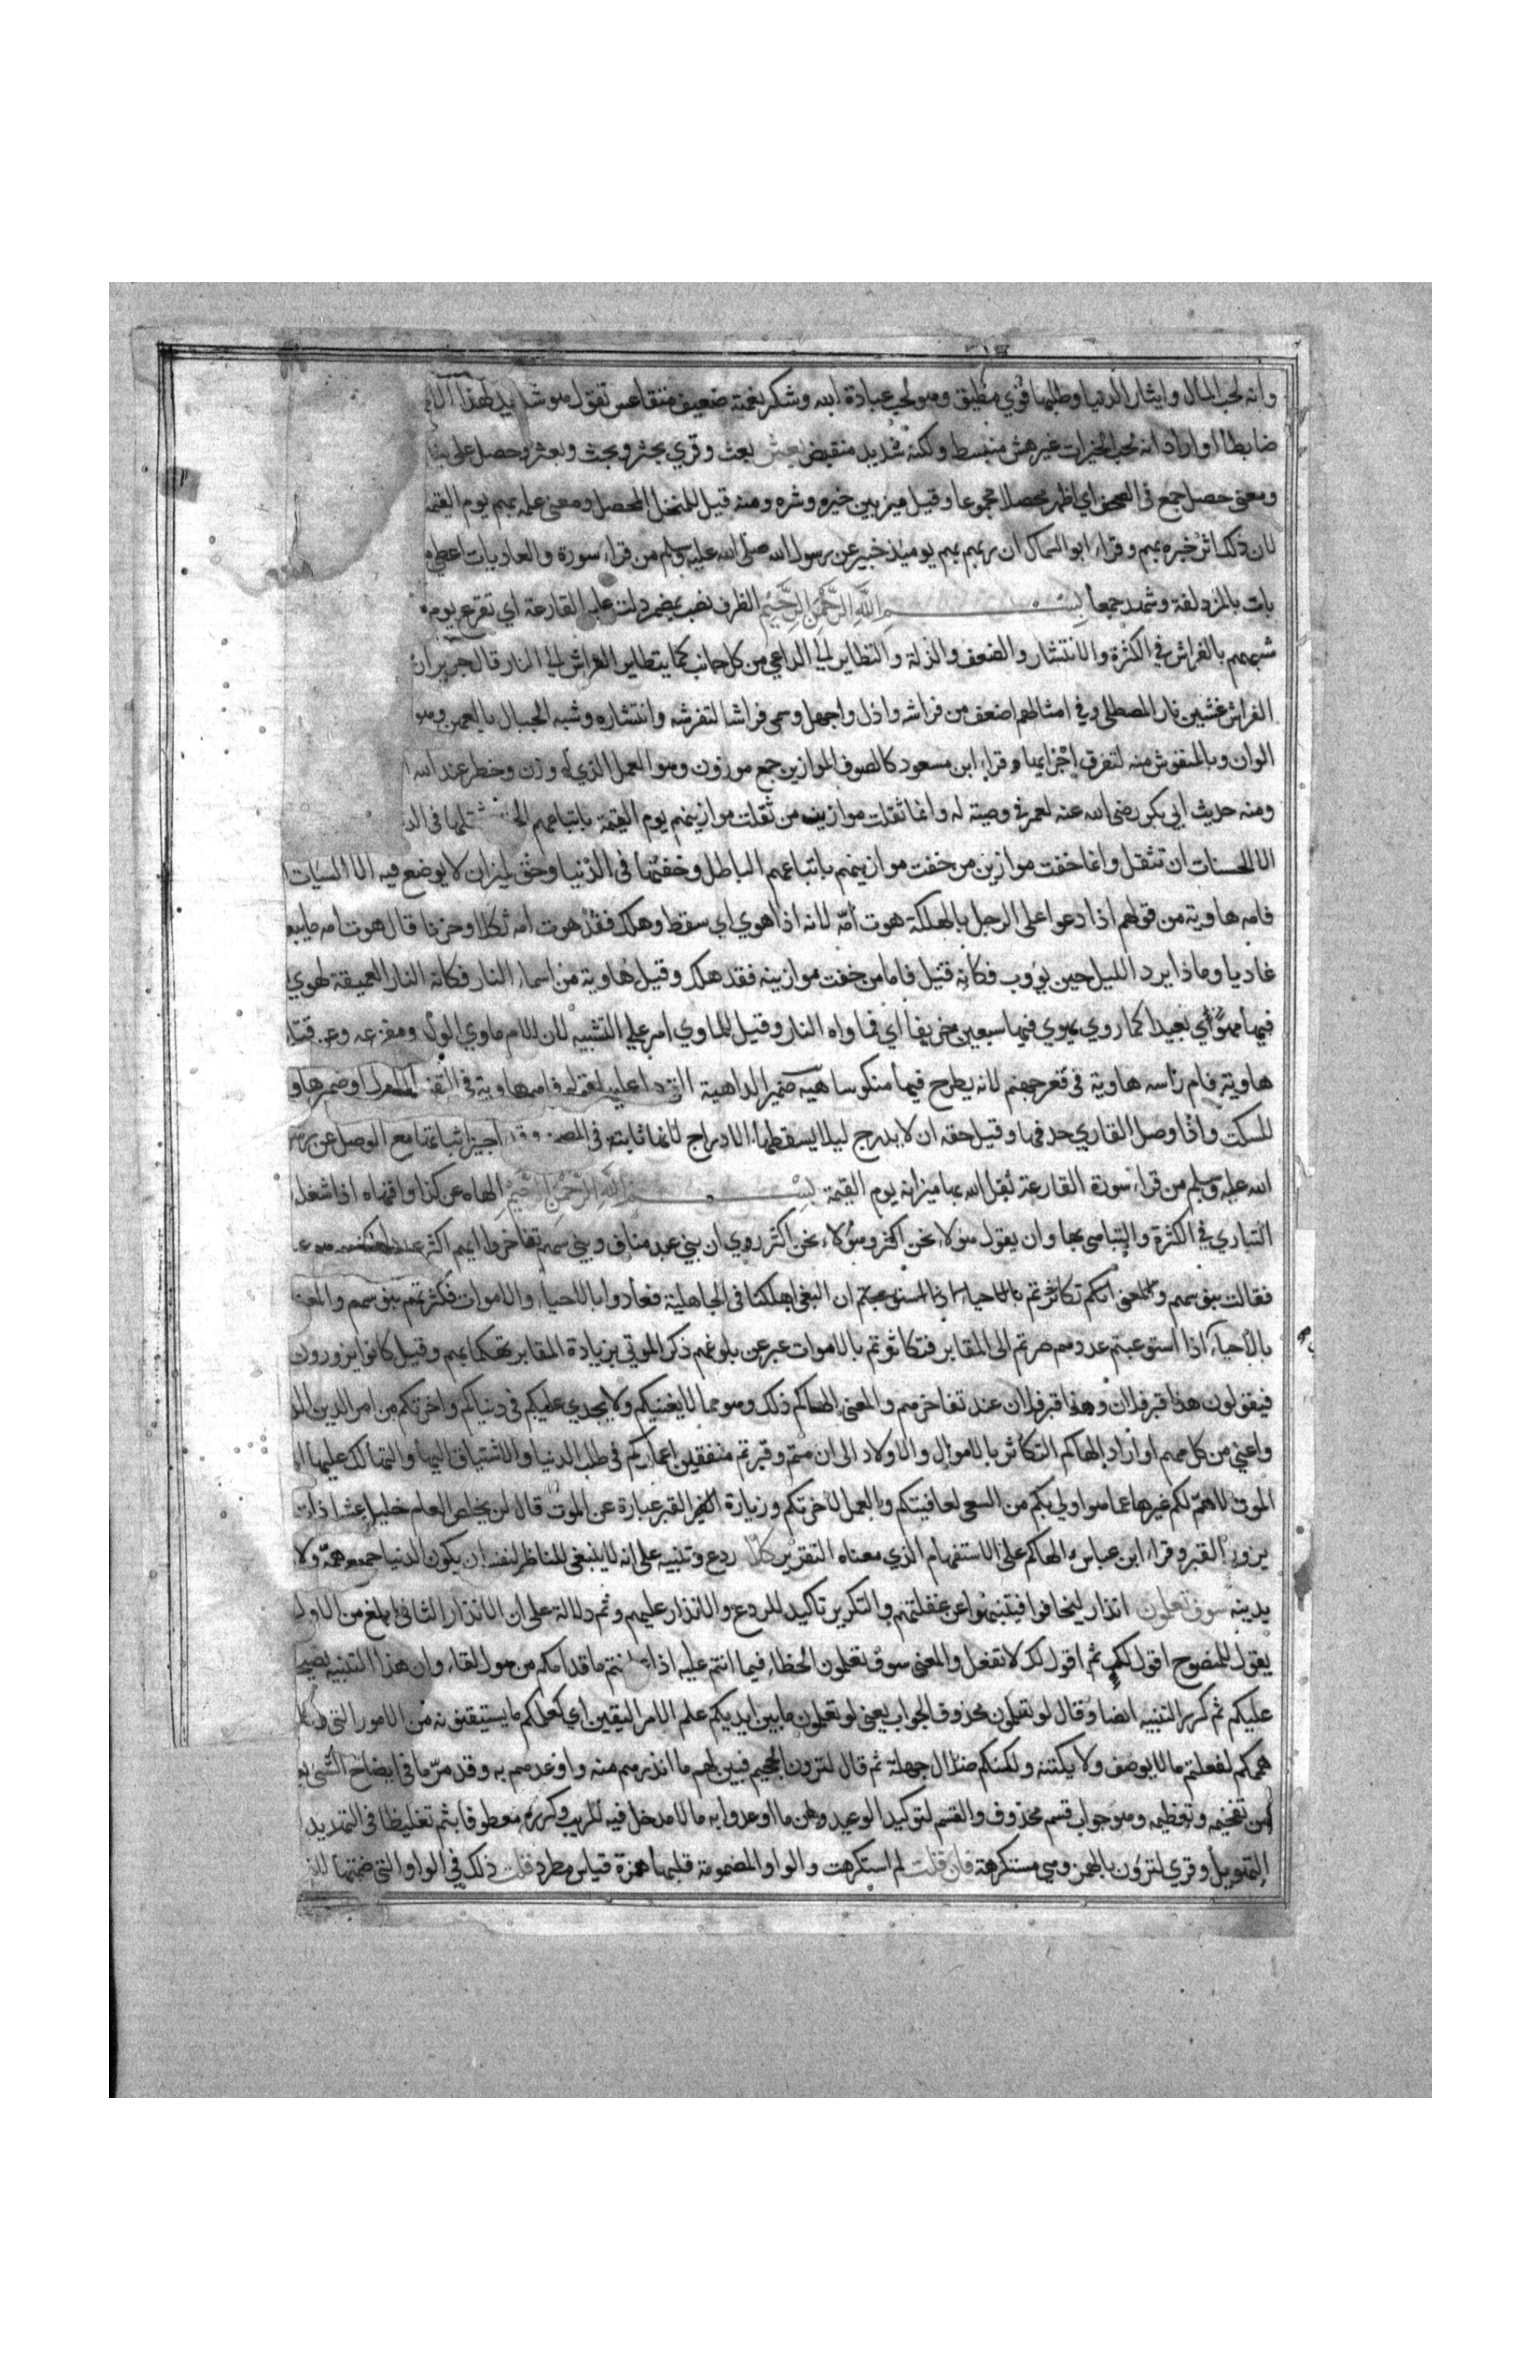 وانه لحب المال وايثار الدنيا وطلبها قوي مطيق وهو لحب عبادة الله وشكر نعمته ضعيف متقاعس تقول هو شديد لهذا الامر
ضابطا او اراد انه لحب الخيرات غير هش منبسط ولكنه شديد منقبض بعثر بعث وقري بحثر وبحث وبعثر وحصل على
ومعنى حصل جمع في الصحف اي اظهر محصلا مجموعا وقيل ميز بين خيره وشره ومنه قيل للمنخل المحصل ومعنى علمه بهم يوم القيمة
لان ذلك اثر خبره بهم وقراء ابو السمال ان ربهم بهم يوميذ خبير عن رسول الله صلى الله عليه وسلم من قراء سورة والعاديات اعطي
بات بالمزدلفة وشهد جمعا بسم الله الرحمن الرحيم الظرف نصب بمضمر دلت عليه القارعة اي تقرع يوم
شبههم بالفراش في الكثرة والانتشار والضعف والذلة والتطاير الى الداعي من كل جانب كما يتطاير الفراش الى النار قال جرير ان
الفراش غشين نار المصطلي وفي امثالهم اضعف من فراشه واذل واجهل وسمي فراشا لتفرشه وانتشاره وشبه الجبال بالعهن وهو
الوان وبالمنفوش منه لتفرق اجزايها وقراء ابن مسعود كالصوف الموازين جمع موزون وهو العمل الذي له وزن وخطر عند الله
ومنه حديث ابي بكر رضي الله عنه لعمر في وصيته له وانما ثقلت موازين من ثقلت موازينهم يوم القيمة باتباعهم الحق وثقلها في
الا الحسنات ان تثقل وانما خفت موازين من خفت موازينهم باتباعهم الباطل وخفتها في الدنيا وحق لميزان لا يوضع فيه الا السيات
فامه هاوية من قولهم اذا دعوا على الرجل بالهلكة هوت امه لانه اذا هوي اي سقط وهلك فقد هوت امه ثكلا وحزنا قال هوت امه ما يبعث
غاديا وماذا يرد الليل حين يؤوب فكانه قيل فاما من خفت موازينه فقد هلك وقيل هاوية من اسماء النار فكانه النار العميقة لهوي
فيها مهوى بعيدا كما روي يهوي فيها سبعين خريفا اي فماواه النار وقيل للماوي ام على التشبيه لان الام ماوي الولد ومفزعه وعن قتادة
هاوية فام راسه هاوية في قعر جهنم لانه يطرح فيها منكوسا هيه ضمير الداهية التي دل عليه قوله فامه هاوية في التفسير الاول او ضمير هاوية
للسكت واذا وصل القاري حذفها وقيل حقه ان لا يدرج ليلا يسقطها الادراج لانها ثابتة في المصحف وقد اجيز اثباتها مع الوصل عن
الله عليه وسلم من قراء سورة القارعة ثقل الله بها ميزانه يوم القيمة بسم الله الرحمن الرحيم الهاه عن كذا واقهاه اذا شغله
التباري في الكثرة والتباهي بها وان يقول هؤلاء نحن اكثر وهؤلاء نحن اكثر روي ان بني عبد مناف وبني سهم تفاخروا ايهم اكثر
فقالت بنو سهم ان البغي اهلكنا في الجاهلية فعادوا بالاحياء والاموات فكثرتهم بنو سهم والمعنى
بالاحياء اذا استوعبتم عددهم صرتم الى المقابر فتكاثرتم بالاموات عبر عن بلوغهم ذكر الموتي بزيادة المقابر تهكما بهم وقيل كانوا يزورون
فيقولون هذا قبر فلان وهذا قبر فلان عند تفاخرهم والمعنى الهاكم ذلك وهو مما لا يغنيكم ولا يجدي عليكم في دنياكم واخرتكم من امر الدين
واعني من كل مهم او اراد الهاكم التكاثر بالاموال والاولاد الى ان متم وقبرتم منفقين اعماركم في طلب الدنيا والاشتياق اليها والتهالك عليها
الموت لا هم لكم غيرها عما هو اولي بكم من السعي لعاقبتكم والعمل لاخرتكم وزيارة القبر عبارة عن الموت قال لن يخلص العام خليل عشرا ذات
يزور القبر وقراء ابن عباس الهاكم على الاستفهام الذي معناه التقرير كلا ردع وتنبيه على انه لا ينبغي للناظر لنفسه ان يكون الدنيا جميع همه ولا
بدينه سوف تعلمون انذار ليخافوا فيتنبهوا عن غفلتهم والتكرير تاكيد للردع والانذار عليهم وثم دلالة على ان الانذار الثاني ابلغ من الاول
يقول للمنصوح اقول لك ثم اقول لك لا تفعل والمعنى سوف تعلمون الخطاء فيما انتم عليه اذا عاينتم ما قدامكم من هول لقاء وان هذا التنبيه نصيحة
عليكم ثم كرر التنبيه ايضا وقال لو تعلمون محذوف الجواب يعني لو تعلمون ما بين ايديكم علم الامر اليقين اي كعلمكم ما يستيقنونه من الامور التي
هممكم لفعلتم ما لا يوصف ولا يكتنه ولكنكم ضلال جهلة ثم قال لترون الجحيم فبين لهم ما انذرهم منه واوعدهم به وقد مر ما في ايضاح الشي
من تفخيمه وتعظيمه وهو جواب قسم محذوف والقسم لتوكيد الوعيد وهن ما اوعدوا به ما لا مدخل فيه للريب وكرره معطوفا بثم تغليظا في التهديد
التهويل وقري لترؤن بالهمز وهي مستكرهة فان قلت لم استكرهت والواو المضمومة قلبها همزة قياس مطرد قلت ذلك في الواو التي ضمتها